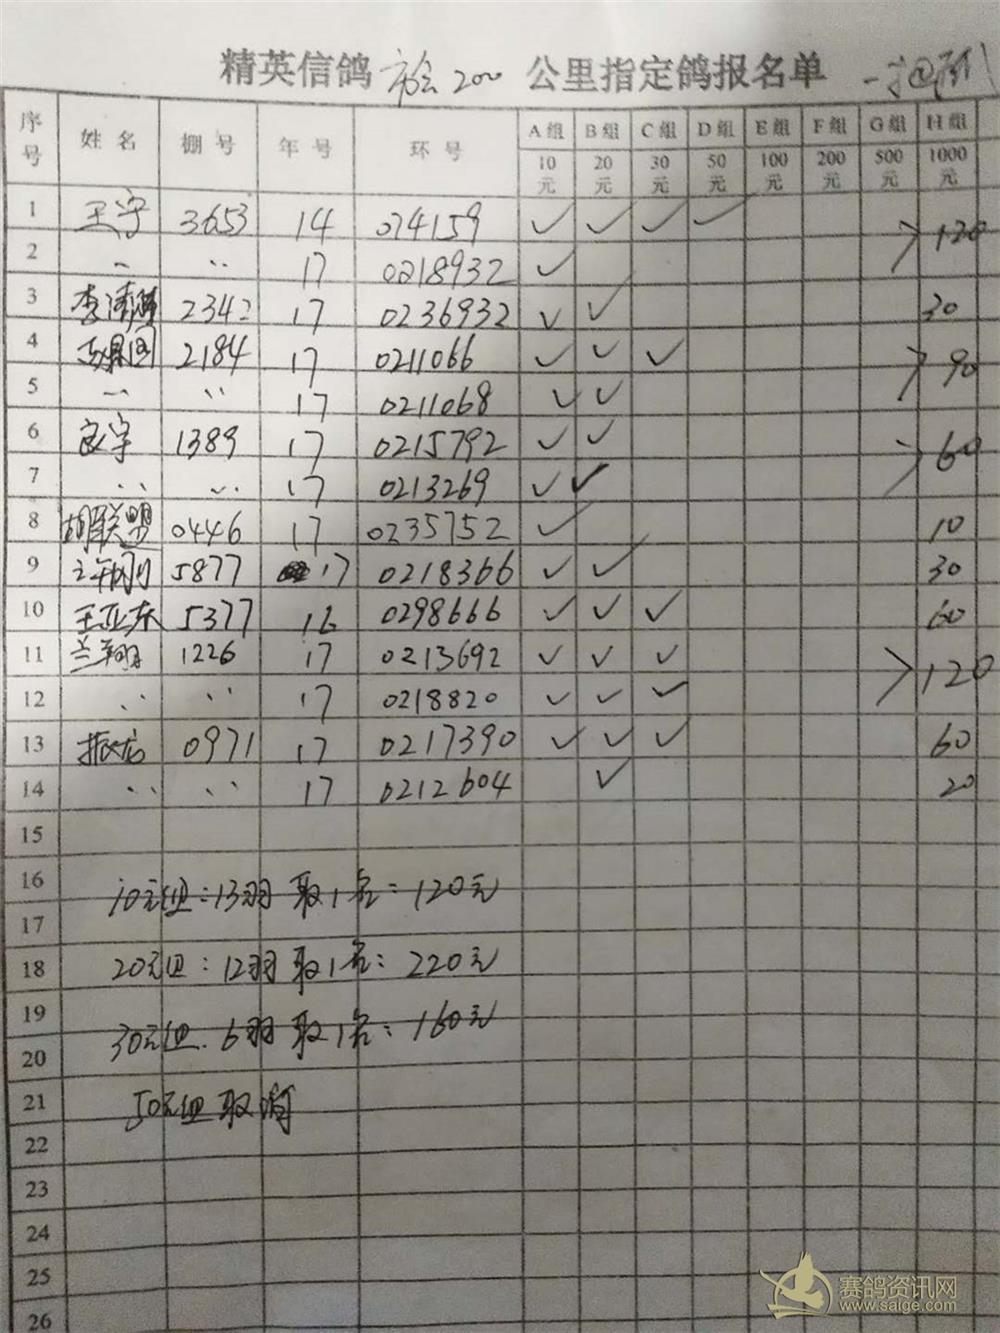 精英信鸽 市会200 公里指定鸽报名单
序号 姓名 棚号 年号 环号 A组 B组 C组 D组 E组 F组 G组 H组
10元 20元 30元 50元 100元 200元 500元 1000元
1 王宇 3653 14 074159 ✓ ✓ ✓ ✓ 120
2 17 0218932 ✓
3 2342 17 0236932 ✓ ✓ 30
4 2184 17 0211066 ✓ ✓ ✓ 90
5 17 0211068 ✓ ✓
6 1389 17 0215792 ✓ ✓ 60
7 17 0213269 ✓ ✓
8 胡联盟 0446 17 0235752 ✓ 10
9 5877 17 0218366 ✓ ✓ 30
10 王亚东 5377 16 0298666 ✓ ✓ ✓ 60
11 兰翔 1226 17 0213692 ✓ ✓ ✓ 120
12 17 0218820 ✓ ✓ ✓
13 0971 17 0217390 ✓ ✓ ✓ 60
14 17 0212604 ✓ 20
15
16 10元组:13羽 取1名:120元
17
18 20元组:12羽 取1名:220元
19
20 30元组:6羽 取1名:160元
21 50元组取消
22
23
24
25
26
赛鸽资讯网
www.saige.com